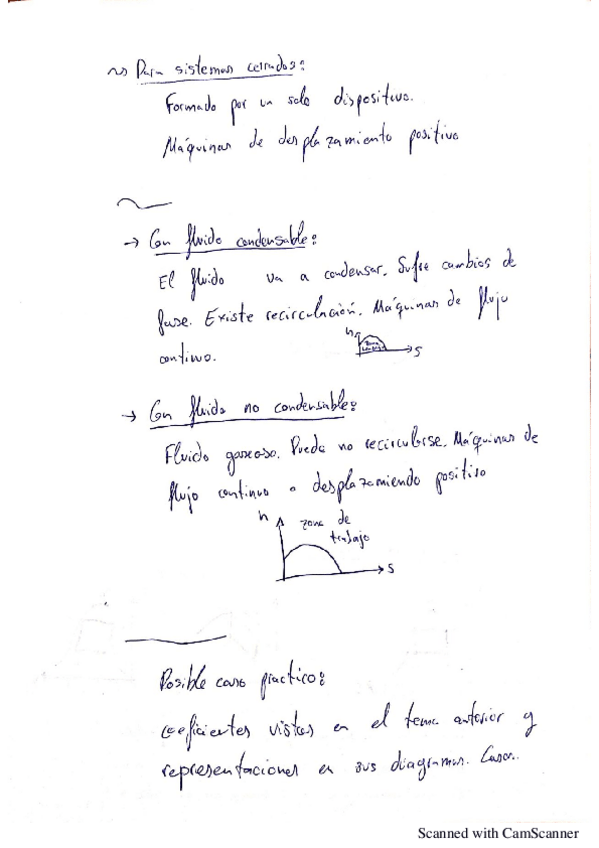 ~> Para sistemas cerrados:
Formado por un solo dispositivo.
Máquinas de desplazamiento positivo
→ Con fluido condensable:
El fluido va a condensar. Sufre cambios de
fase. Existe recirculación. Máquinas de flujo
continuo.
h
s
→ Con fluido no condensable:
Fluido gaseoso. Puede no recircularse. Máquinas de
flujo continuo o desplazamiendo positivo
h zona de
trabajo
s
Posible caso practico:
coeficientes vistos en el tema anterior y
representaciones en sus diagramas.
Scanned with CamScanner